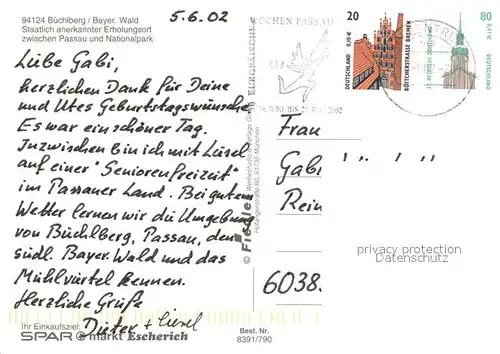 94124 Büchlberg / Bayer. Wald
Staatlich anerkannter Erholungsort
zwischen Passau und Nationalpark
5.6.02
Liebe Gabi,
herzlichen Dank für Deine
und Utes Geburtstagswünsche.
Es war ein schöner Tag.
Inzwischen bin ich mit Liesel
auf einer "Seniorenfreizeit"
im Passauer Land. Bei gutem
Wetter lernen wir die Umgebung
von Büchlberg, Passau, den
südl. Bayer. Wald und das
Mühlviertel kennen.
Herzliche Grüße
Dieter + Liesel
Ihr Einkaufsziel:
SPAR markt Escherich
Best. Nr.
8391/790
© Fiedler
Hofangerstraße 80, 81735 München
EUROPÄISCHE
WOCHEN PASSAU
20
DEUTSCHLAND
BÖTTCHERSTRASSE BREMEN
80
DEUTSCHLAND
Frau
Gabi
Rein
6038.
privacy protection
Datenschutz